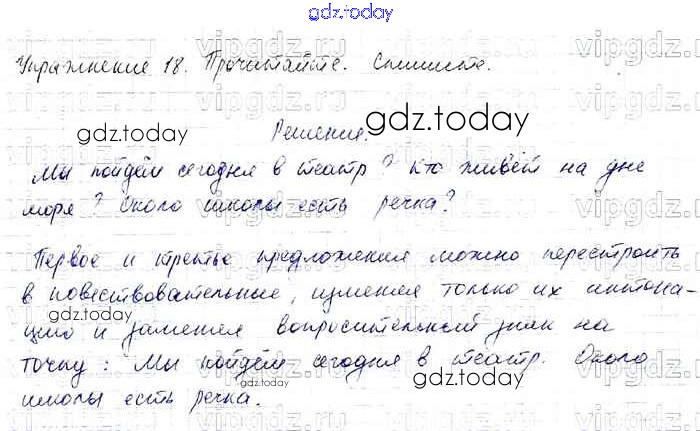 gdz.today
Упражнение 18. Прочитайте. Спишите.
gdz.today
gdz.today
Решение.
Мы пойдём сегодня в театр? Кто живёт на дне
море? Около школы есть речка?
Первое и третье предложения можно перестроить
в повествовательные, изменяя только их интона-
цию и заменяя вопросительный знак на
точку: Мы пойдём сегодня в театр. Около
gdz.today
gdz.today
школы есть речка.